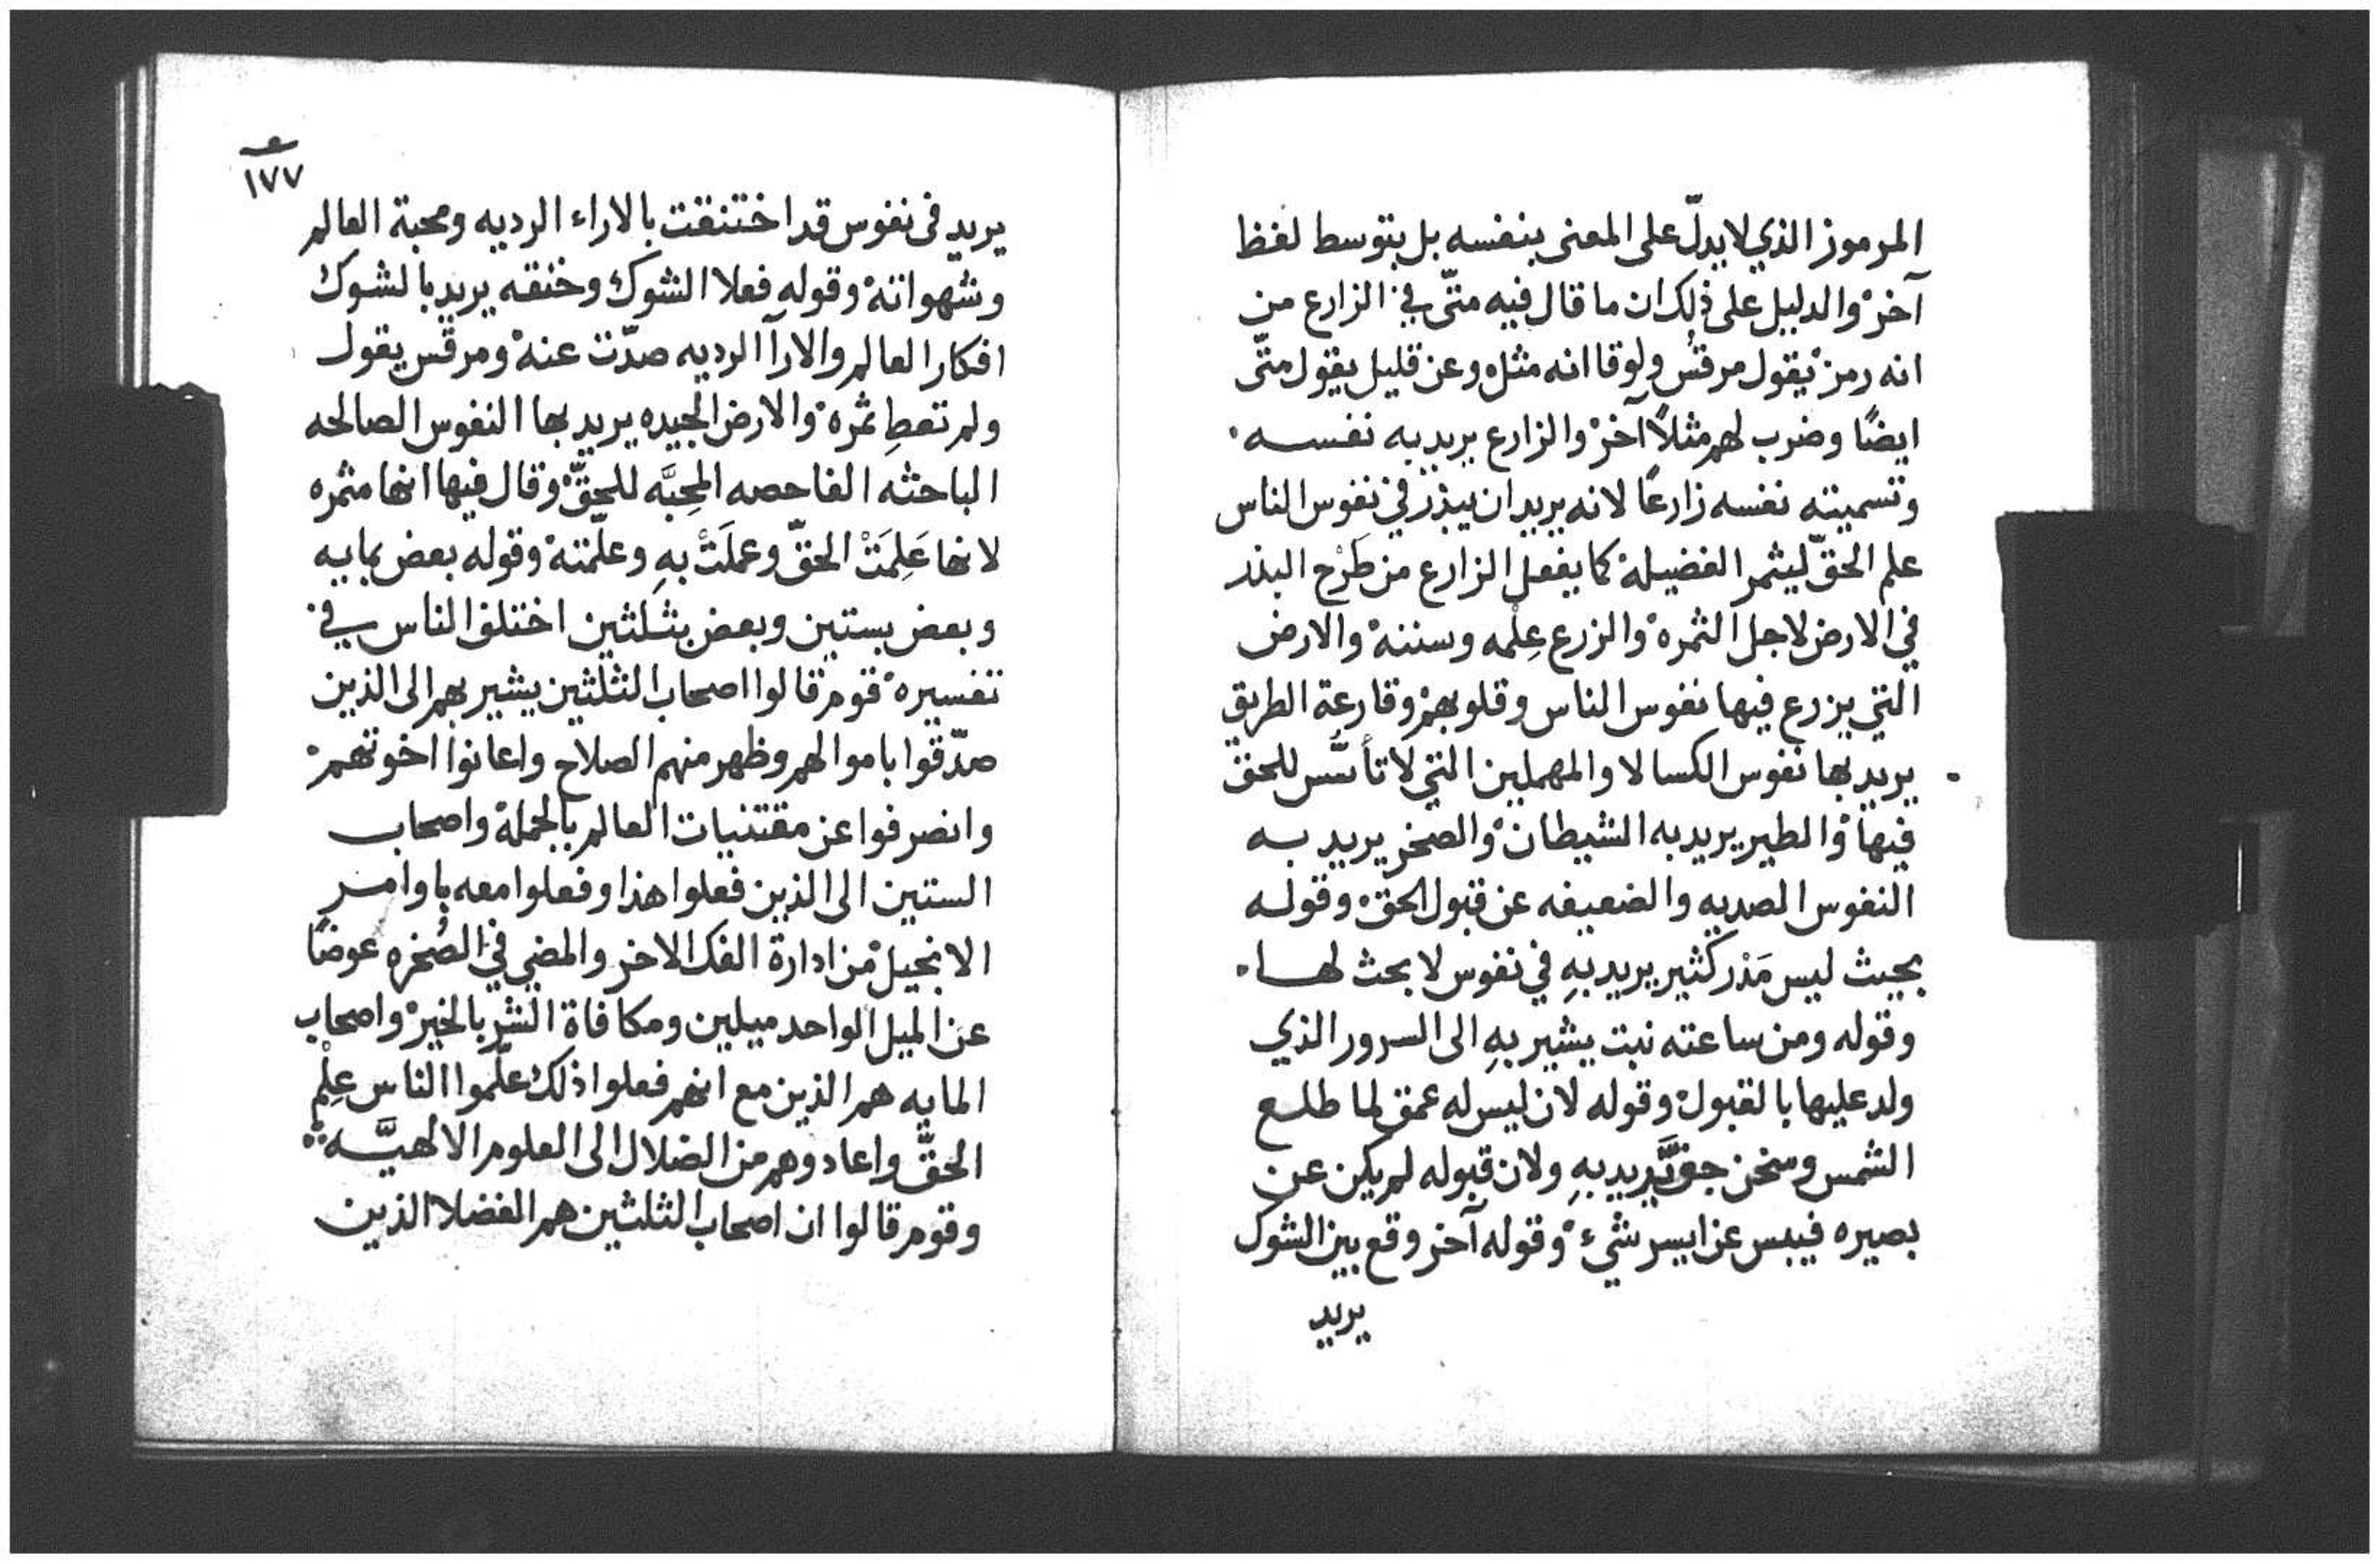 المرموز الذي لا يدلّ على المعنى بنفسه بل بتوسط لفظ
آخر والدليل على ذلك ان ما قال فيه متّى في الزارع من
انه رمز يقول مرقس ولوقا انه مثل وعن قليل يقول متّى
ايضًا وضرب لهم مثلاً آخر والزارع يريد به نفسه
وتسميته نفسه زارعًا لانه يريد ان يبذر في نفوس الناس
علم الحقّ ليثمر الفضيلة كما يفعل الزارع من طَرْح البذر
في الارض لاجل الثمره والزرع عِلْمه وسننه والارض
التي يزرع فيها نفوس الناس وقلوبهم وقارعة الطريق
يريد بها نفوس الكسالا والمهملين التي لا تأسّس للحق
فيها والطير يريد به الشيطان والصخر يريد به
النفوس الصديه والضعيفه عن قبول الحق وقوله
بحيث ليس مَدَر كثير يريد بهِ في نفوس لا بحث لها
وقوله ومن ساعته نبت يشير بهِ الى السرور الذي
ولد عليها بالقبول وقوله لان ليس له عمق لما طلع
الشمس وسخن جفّ يريد بهِ ولان قبوله لم يكن عن
بصيره فيبس عن ايسر شيء وقوله آخر وقع بين الشوك
يريد
١٧٧
يريد في نفوس قد اختنقت بالاراء الرديه ومحبة العالم
وشهواته وقوله فعلا الشوك وخنقه يريد بالشوك
افكار العالم والارآ الرديه صدّت عنه ومرقس يقول
ولم تعطِ ثمره والارض الجيده يريد بها النفوس الصالحه
الباحثه الفاحصه المحِبَّه للحقّ وقال فيها انها مثمره
لانها عَلِمَتْ الحقّ وعملَتْ بهِ وعلّمته وقوله بعض بمايه
وبعض بستين وبعض بثلثين اختلف الناس في
تفسيره قوم قالوا اصحاب الثلثين يشير بهم الى الذين
صدّقوا باموالهم وظهر منهم الصلاح واعانوا اخوتهم
وانصرفوا عن مقتنيات العالم بالجملة واصحاب
الستين الى الذين فعلوا هذا وفعلوا معه باوامر
الانجيل من ادارة الفك الاخر والمضي في الصُخره عوضًا
عن الميل الواحد ميلين ومكافاة الشر بالخير واصحاب
المايه هم الذين مع انهم فعلوا ذلك علّموا الناس عِلْم
الحقّ واعادوهم من الضلال الى العلوم الالهيَّه
وقوم قالوا ان اصحاب الثلثين هم الفضلا الذين